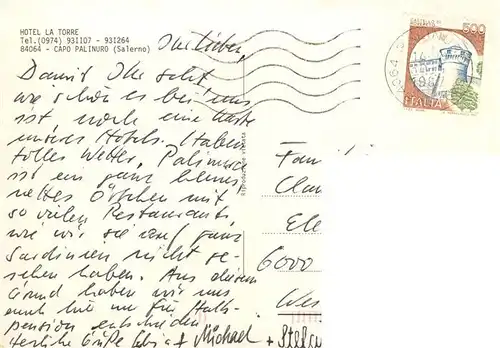 HOTEL LA TORRE
Tel.(0974) 931107 - 931264
84064 - CAPO PALINURO (Salerno)
Ihr Lieben,
Damit Ihr seht
wie schön es bei uns
ist noch eine Karte
unseres Hotels. Italien
tolles Wetter, Palinuro
ist ein ganz kleines
nettes Örtchen mit
so vielen Restaurants
wie wir sie auf ganz
Sardinien nicht ge-
sehen haben. Aus diesem
Grund haben wir uns
auch nur für Halb-
pension entschieden
Herzliche Grüße
Michael
+ Stefa
Riproduzione vietata
Fam
Clau
Ele
6000
Wes
500
ITALIA
84064